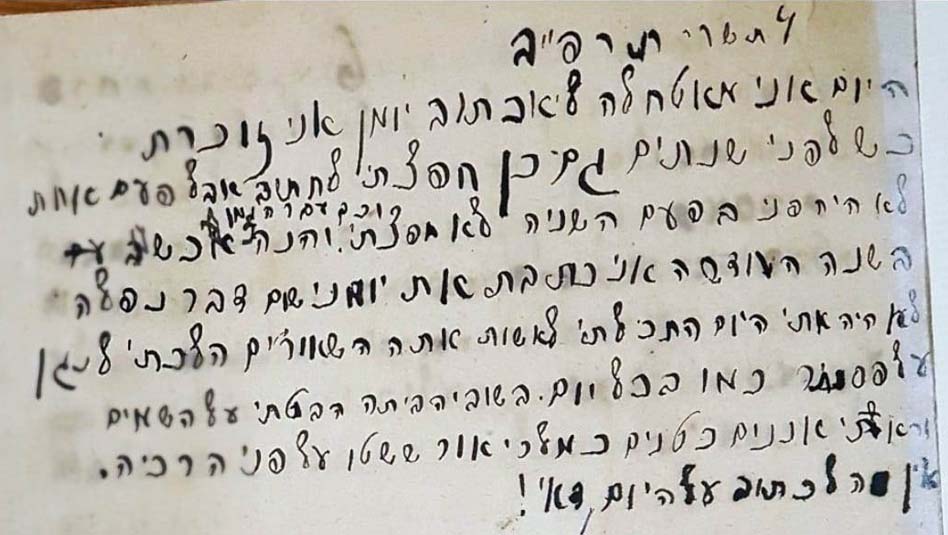 4 תשרי תרפ״ב
היום אני מאטחלה ליאכתוב יומן אני זוכרת
כש לפני שנתים גם כן חפצתי לחתוב אבל פעם אחת
וככ עברה הזמן
לא היה פני בפעם השניה לא חפצתי. והנה
בשנה אני כתבת את יומני שום דבר נפלה
לא היה אתי היום התכלתי לאשות אתה השאורים הלכתי לנגן
על פסנתר כמו בכל יום. בשובי הביתה הבטתי על השמים
וראתי אננים כטנים כמלכי אור ששטו על פני הרכיה.
אין מה לכתוב על היום, דאי!